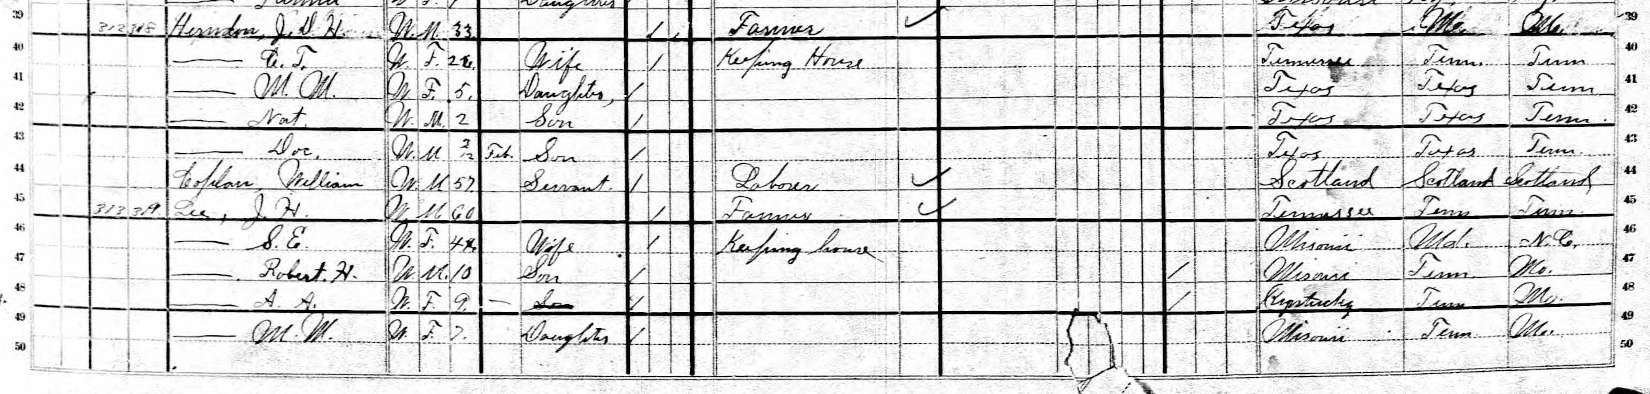 Daughter
39 312 318 Herndon, J. D. H. W. M. 33 / Farmer ✓ Texas Mo. Mo. 39
40 —— W. F. Wife / Keeping House Tennessee Tenn. Tenn 40
41 —— M. M. W. F. 5. Daughter, / Texas Texas Tenn 41
42 —— Nat. W. M. 2 Son / Texas Texas Tenn. 42
43 —— Doc. W. M. 2/12 Feb. Son / Texas Texas Tenn. 43
44 William W. M. 57 Servant. / Laborer ✓ Scotland Scotland Scotland 44
45 313 319 Lee, J. H. W. M. 60 / Farmer ✓ Tennessee Tenn Tenn. 45
46 —— S. E. W. F. Wife / Keeping house Misouri Md. N. C. 46
47 —— Robert. H. W. M. 10 Son / / Misouri Tenn Mo. 47
48 —— A. A. W. F. 9. — Son / / Kentucky Tenn Mo. 48
49 —— M. M. W. F. 7. Daughter / Misouri Tenn Mo. 49
50 50